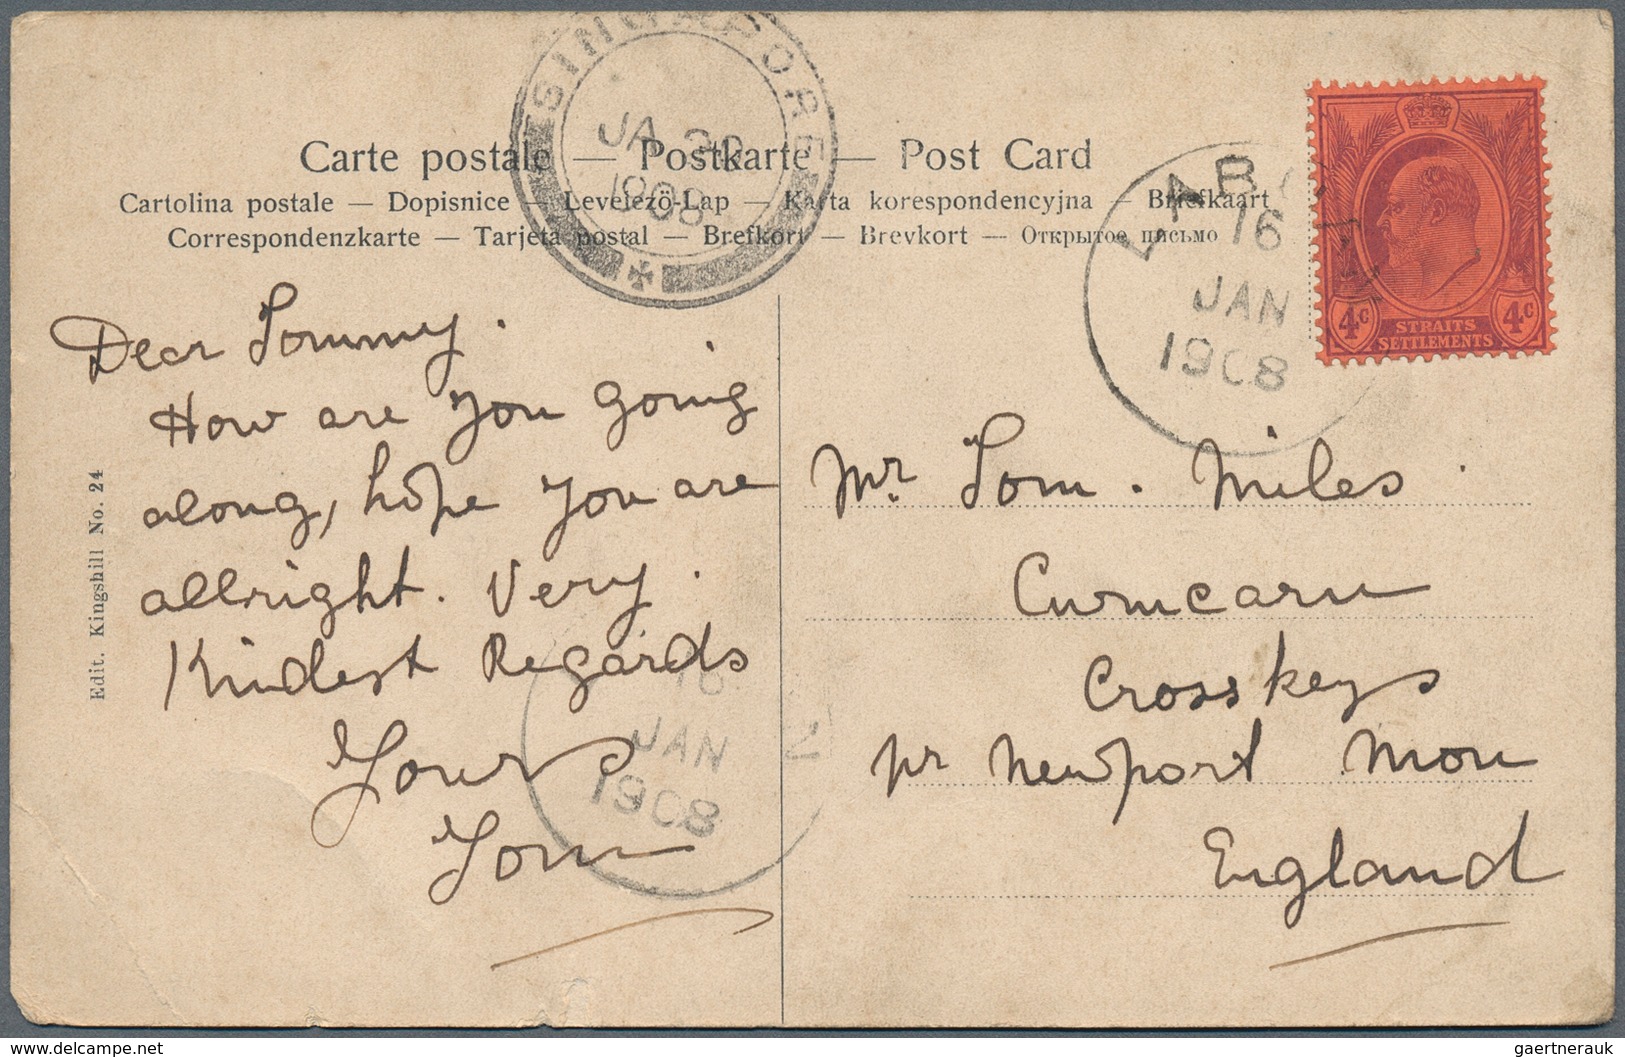 SINGAPORE
JA 20
1908
Carte postale — Postkarte — Post Card
Cartolina postale — Dopisnice — Levelező-Lap — Karta korespondencyjna — Briefkaart
Correspondenzkarte — Tarjeta postal — Brefkort — Brevkort — Открытое письмо
16
JAN
1908
4c 4c
STRAITS
SETTLEMENTS
Edit. Kingshill No. 24
Dear Tommy.
How are you going
along, hope you are
allright. Very
Kindest Regards
Yours
Tom
16
JAN
1908
Mr Tom. Miles.
Cwmcarn
Cross keys
nr Newport Mon
England
www.delcampe.net
gaertnerauk